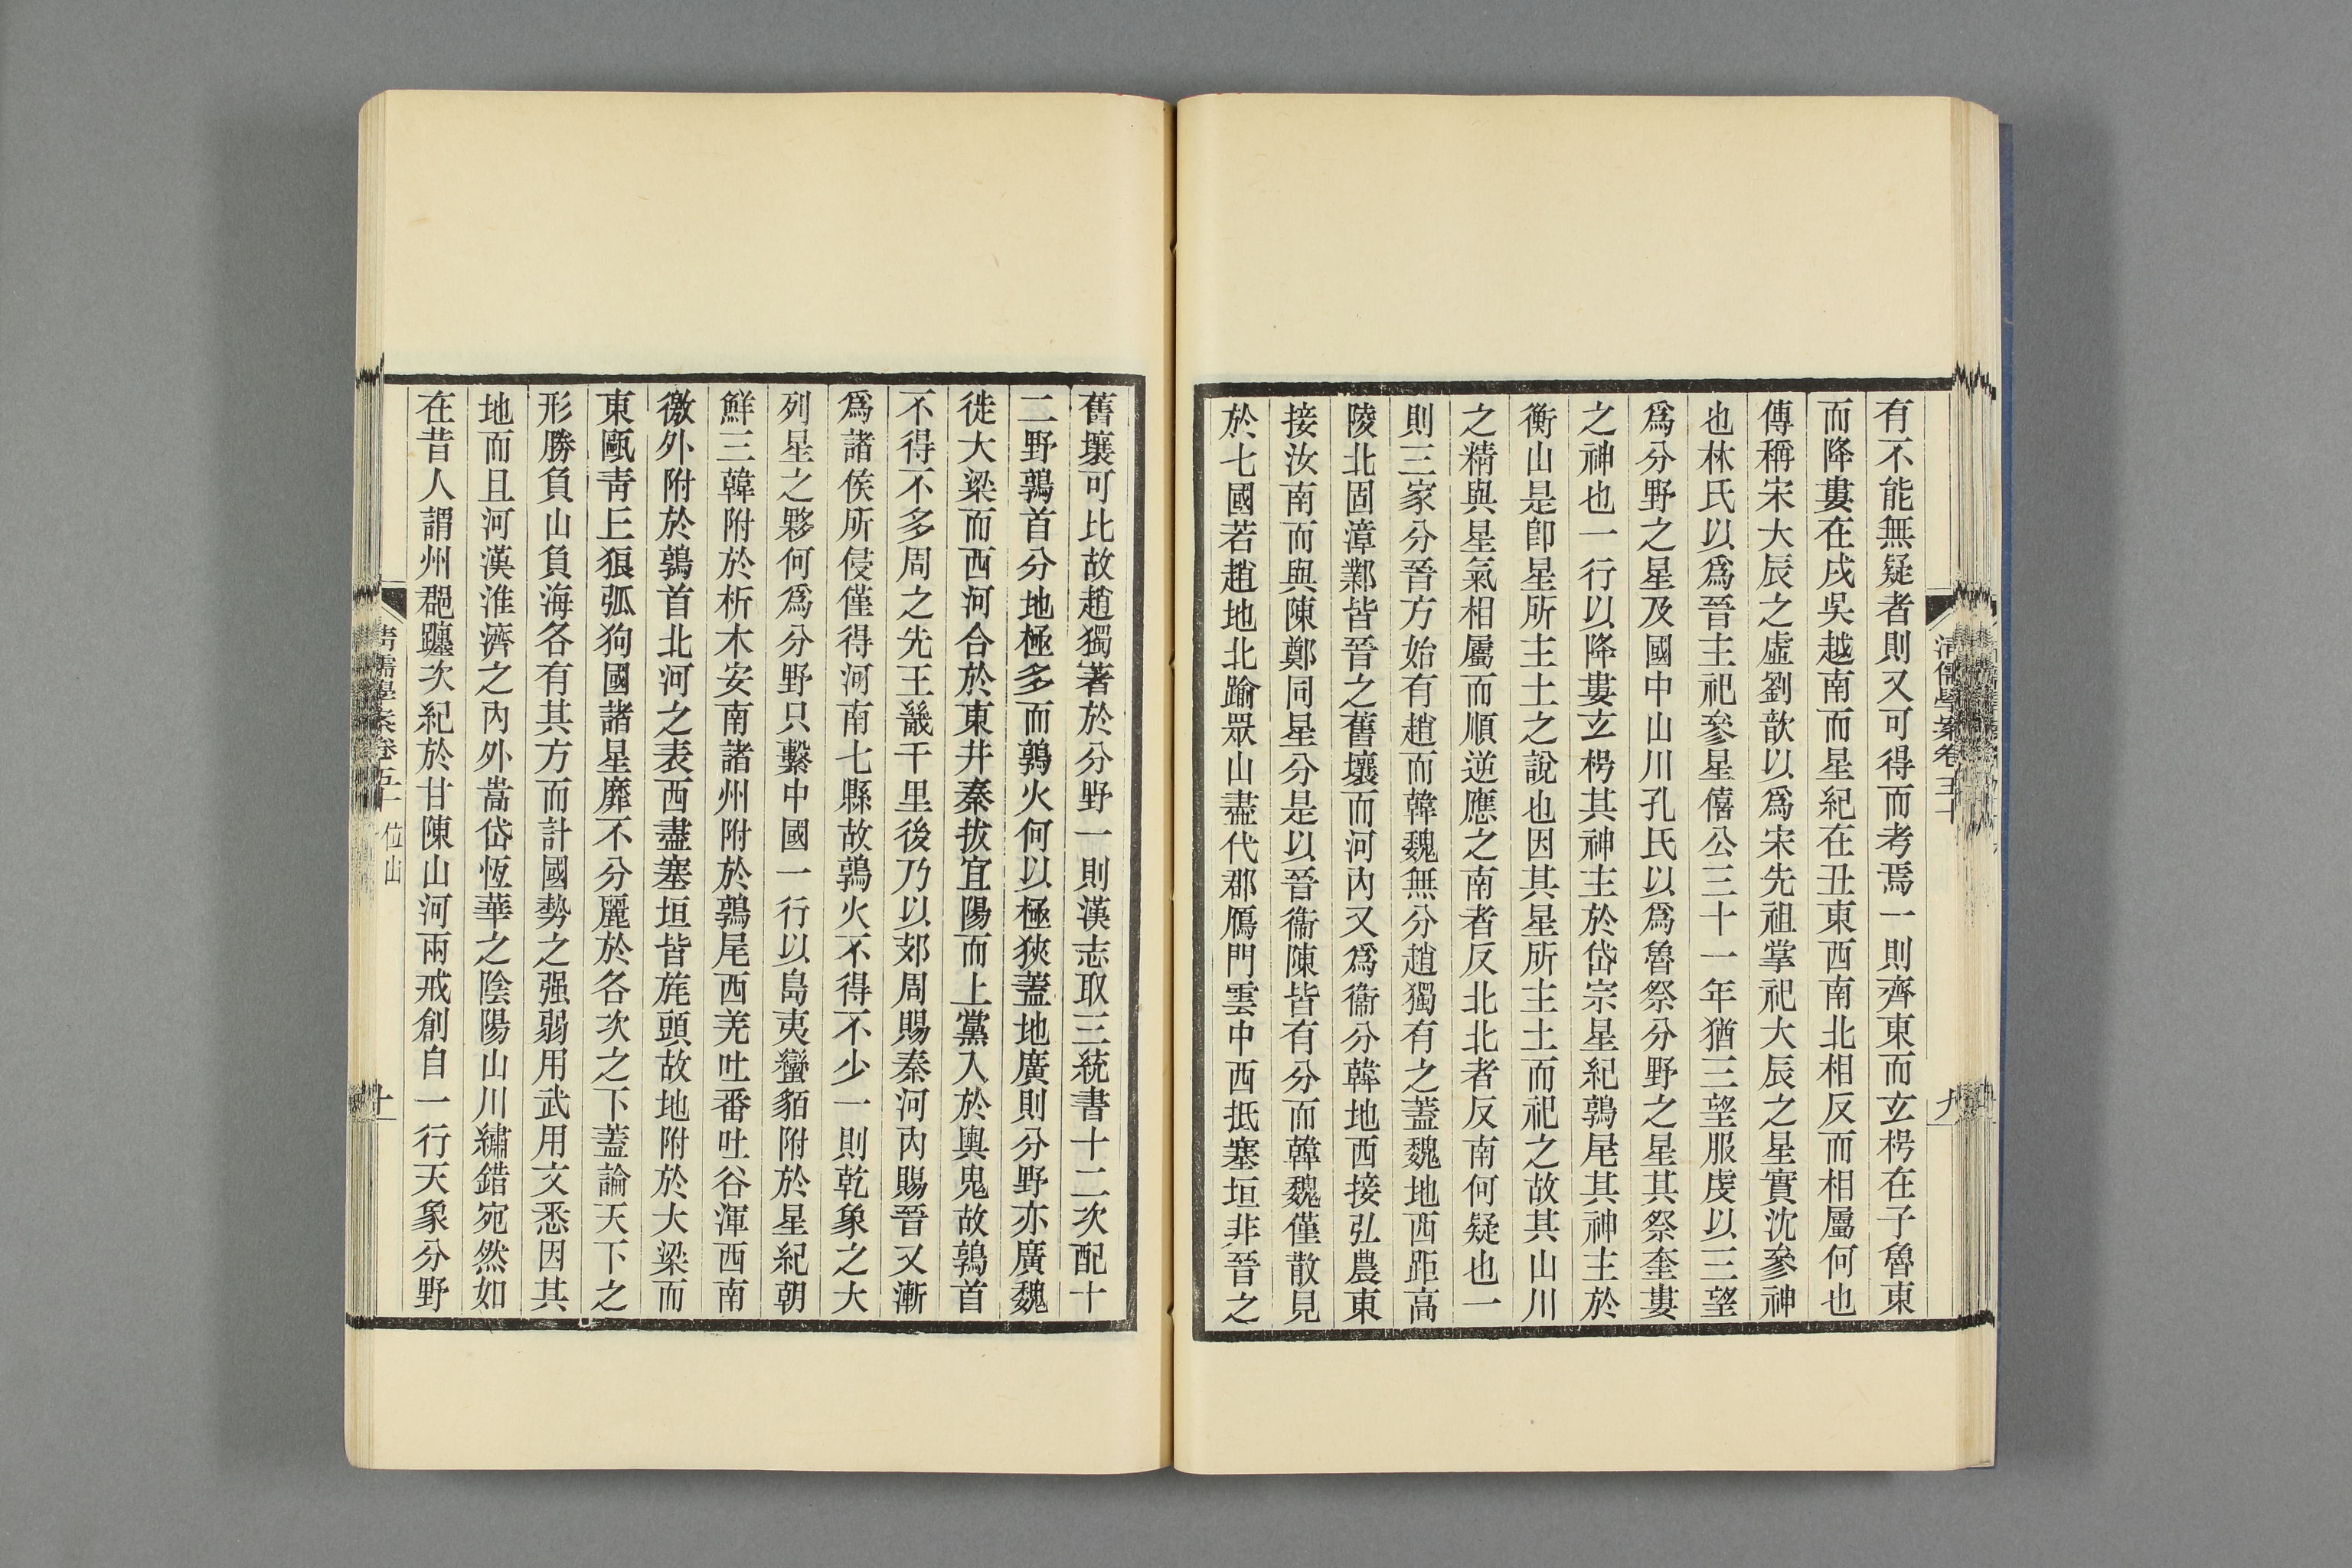 有不能無疑者則又可得而考焉一則齊東而玄枵在子魯東
而降婁在戌吳越南而星紀在丑東西南北相反而相屬何也
傳稱宋大辰之虛劉歆以爲宋先祖掌祀大辰之星實沈參神
也林氏以爲晉主祀參星僖公三十一年猶三望服虔以三望
爲分野之星及國中山川孔氏以爲魯祭分野之星其祭奎婁
之神也一行以降婁玄枵其神主於岱宗星紀鶉尾其神主於
衡山是卽星所主土之說也因其星所主土而祀之故其山川
之精與星氣相屬而順逆應之南者反北北者反南何疑也一
則三家分晉方始有趙而韓魏無分趙獨有之蓋魏地西距高
陵北固漳鄴皆晉之舊壤而河內又爲衞分韓地西接弘農東
接汝南而與陳鄭同星分是以晉衞陳皆有分而韓魏僅散見
於七國若趙地北踰眾山盡代郡鴈門雲中西抵塞垣非晉之
清儒學案卷五十
九
舊壤可比故趙獨著於分野一則漢志取三統書十二次配十
二野鶉首分地極多而鶉火何以極狹蓋地廣則分野亦廣魏
徙大梁而西河合於東井秦拔宜陽而上黨入於輿鬼故鶉首
不得不多周之先王畿千里後乃以郊周賜秦河內賜晉又漸
爲諸侯所侵僅得河南七縣故鶉火不得不少一則乾象之大
列星之夥何爲分野只繫中國一行以島夷蠻貊附於星紀朝
鮮三韓附於析木安南諸州附於鶉尾西羌吐番吐谷渾西南
徼外附於鶉首北河之表西盡塞垣皆旄頭故地附於大梁而
東甌靑丘狼弧狗國諸星靡不分麗於各次之下蓋論天下之
形勝負山負海各有其方而計國勢之强弱用武用文悉因其
地而且河漢淮濟之內外嵩岱恆華之陰陽山川繡錯宛然如
在昔人謂州郡躔次紀於甘陳山河兩戒創自一行天象分野
清儒學案卷五十 位山
十